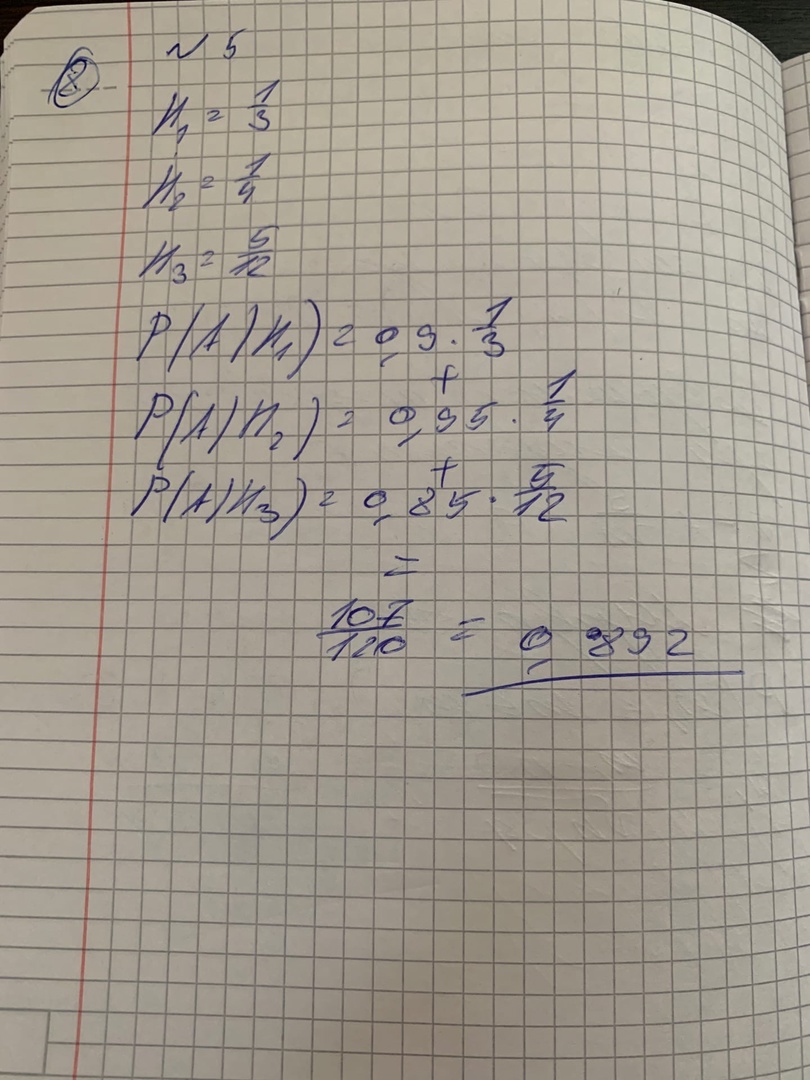 8 №5
H₁ = 1/3
H₂ = 1/4
H₃ = 5/12
P(A|H₁) = 0,9 · 1/3
+
P(A|H₂) = 0,95 · 1/4
+
P(A|H₃) = 0,85 · 5/12
=
107/120 = 0,892